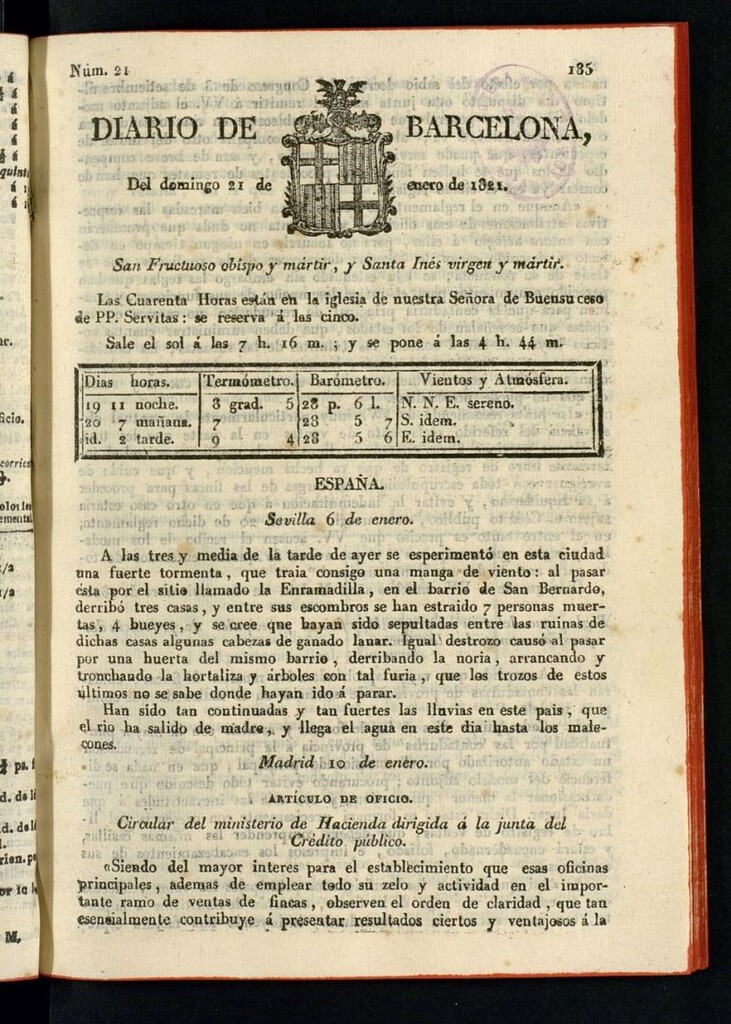 Núm. 21 185
DIARIO DE BARCELONA,
Del domingo 21 de enero de 1821.
San Fructuoso obispo y mártir, y Santa Inés virgen y mártir.
Las Cuarenta Horas están en la iglesia de nuestra Señora de Buensuceso
de PP. Servitas: se reserva á las cinco.
Sale el sol á las 7 h. 16 m.; y se pone á las 4 h. 44 m.
Dias horas. Termómetro. Barómetro. Vientos y Atmósfera.
19 11 noche. 8 grad. 5 28 p. 6 l. N. N. E. sereno.
20 7 mañana. 7 28 5 7 S. idem.
id. 2 tarde. 9 4 28 5 6 E. idem.
ESPAÑA.
Sevilla 6 de enero.
A las tres y media de la tarde de ayer se esperimentó en esta ciudad
una fuerte tormenta, que traia consigo una manga de viento: al pasar
ésta por el sitio llamado la Enramadilla, en el barrio de San Bernardo,
derribó tres casas, y entre sus escombros se han estraido 7 personas muer-
tas, 4 bueyes, y se cree que hayan sido sepultadas entre las ruinas de
dichas casas algunas cabezas de ganado lanar. Igual destrozo causó al pasar
por una huerta del mismo barrio, derribando la noria, arrancando y
tronchando la hortaliza y árboles con tal furia, que los trozos de estos
últimos no se sabe donde hayan ido á parar.
Han sido tan continuadas y tan fuertes las lluvias en este pais, que
el rio ha salido de madre, y llega el agua en este dia hasta los male-
cones.
Madrid 10 de enero.
ARTÍCULO DE OFICIO.
Circular del ministerio de Hacienda dirigida á la junta del
Crédito público.
«Siendo del mayor interes para el establecimiento que esas oficinas
principales, ademas de emplear todo su zelo y actividad en el impor-
tante ramo de ventas de fincas, observen el orden de claridad, que tan
esencialmente contribuye á presentar resultados ciertos y ventajosos á la